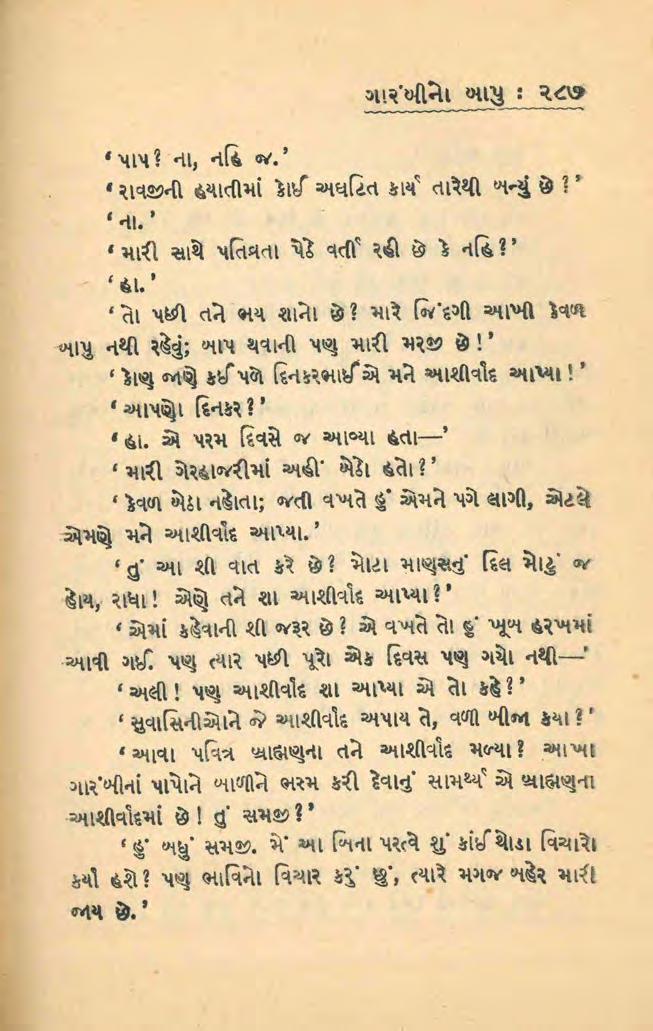 ગારંબીનો બાપુ : ૨૮૭
‘ પાપ? ના, નહિ જ.’
‘ રાવજીની હયાતીમાં કોઈ અઘટિત કાર્ય તારેથી બન્યું છે ?’
‘ ના.’
‘ મારી સાથે પતિવ્રતા પેઠે વર્તી રહી છે કે નહિ?’
‘ હા.’
‘ તો પછી તને ભય શાનો છે? મારે જિંદગી આખી કેવળ
બાપુ નથી રહેવું; બાપ થવાની પણ મારી મરજી છે !’
‘ કોણ જાણે કઈ પળે દિનકરભાઈએ મને આશીર્વાદ આપ્યા !’
‘ આપણો દિનકર?’
‘ હા. એ પરમ દિવસે જ આવ્યા હતા—’
‘ મારી ગેરહાજરીમાં અહીં બેઠો હતો?’
‘ કેવળ બેઠા નહોતા; જતી વખતે હું એમને પગે લાગી, એટલે
એમણે મને આશીર્વાદ આપ્યા.’
‘ તું આ શી વાત કરે છે? મોટા માણસનું દિલ મોટું જ
હોય, રાધા! એણે તને શા આશીર્વાદ આપ્યા?’
‘ એમાં કહેવાની શી જરૂર છે? એ વખતે તો હું ખૂબ હરખમાં
આવી ગઈ. પણ ત્યાર પછી પૂરો એક દિવસ પણ ગયો નથી—’
‘ અલી ! પણ આશીર્વાદ શા આપ્યા એ તો કહે?’
‘ સુવાસિનીઓને જે આશીર્વાદ અપાય તે, વળી બીજા કયા?’
‘ આવા પવિત્ર બ્રાહ્મણના તને આશીર્વાદ મળ્યા? આખા
ગારંબીનાં પાપોને બાળીને ભસ્મ કરી દેવાનું સામર્થ્ય એ બ્રાહ્મણના
આશીર્વાદમાં છે ! તું સમજી?’
‘ હું બધું સમજી. મેં આ બિના પરત્વે શું કાંઈ થોડા વિચારો
કર્યા હશે? પણ ભાવિનો વિચાર કરું છું, ત્યારે મગજ બહેર મારી
જાય છે.’